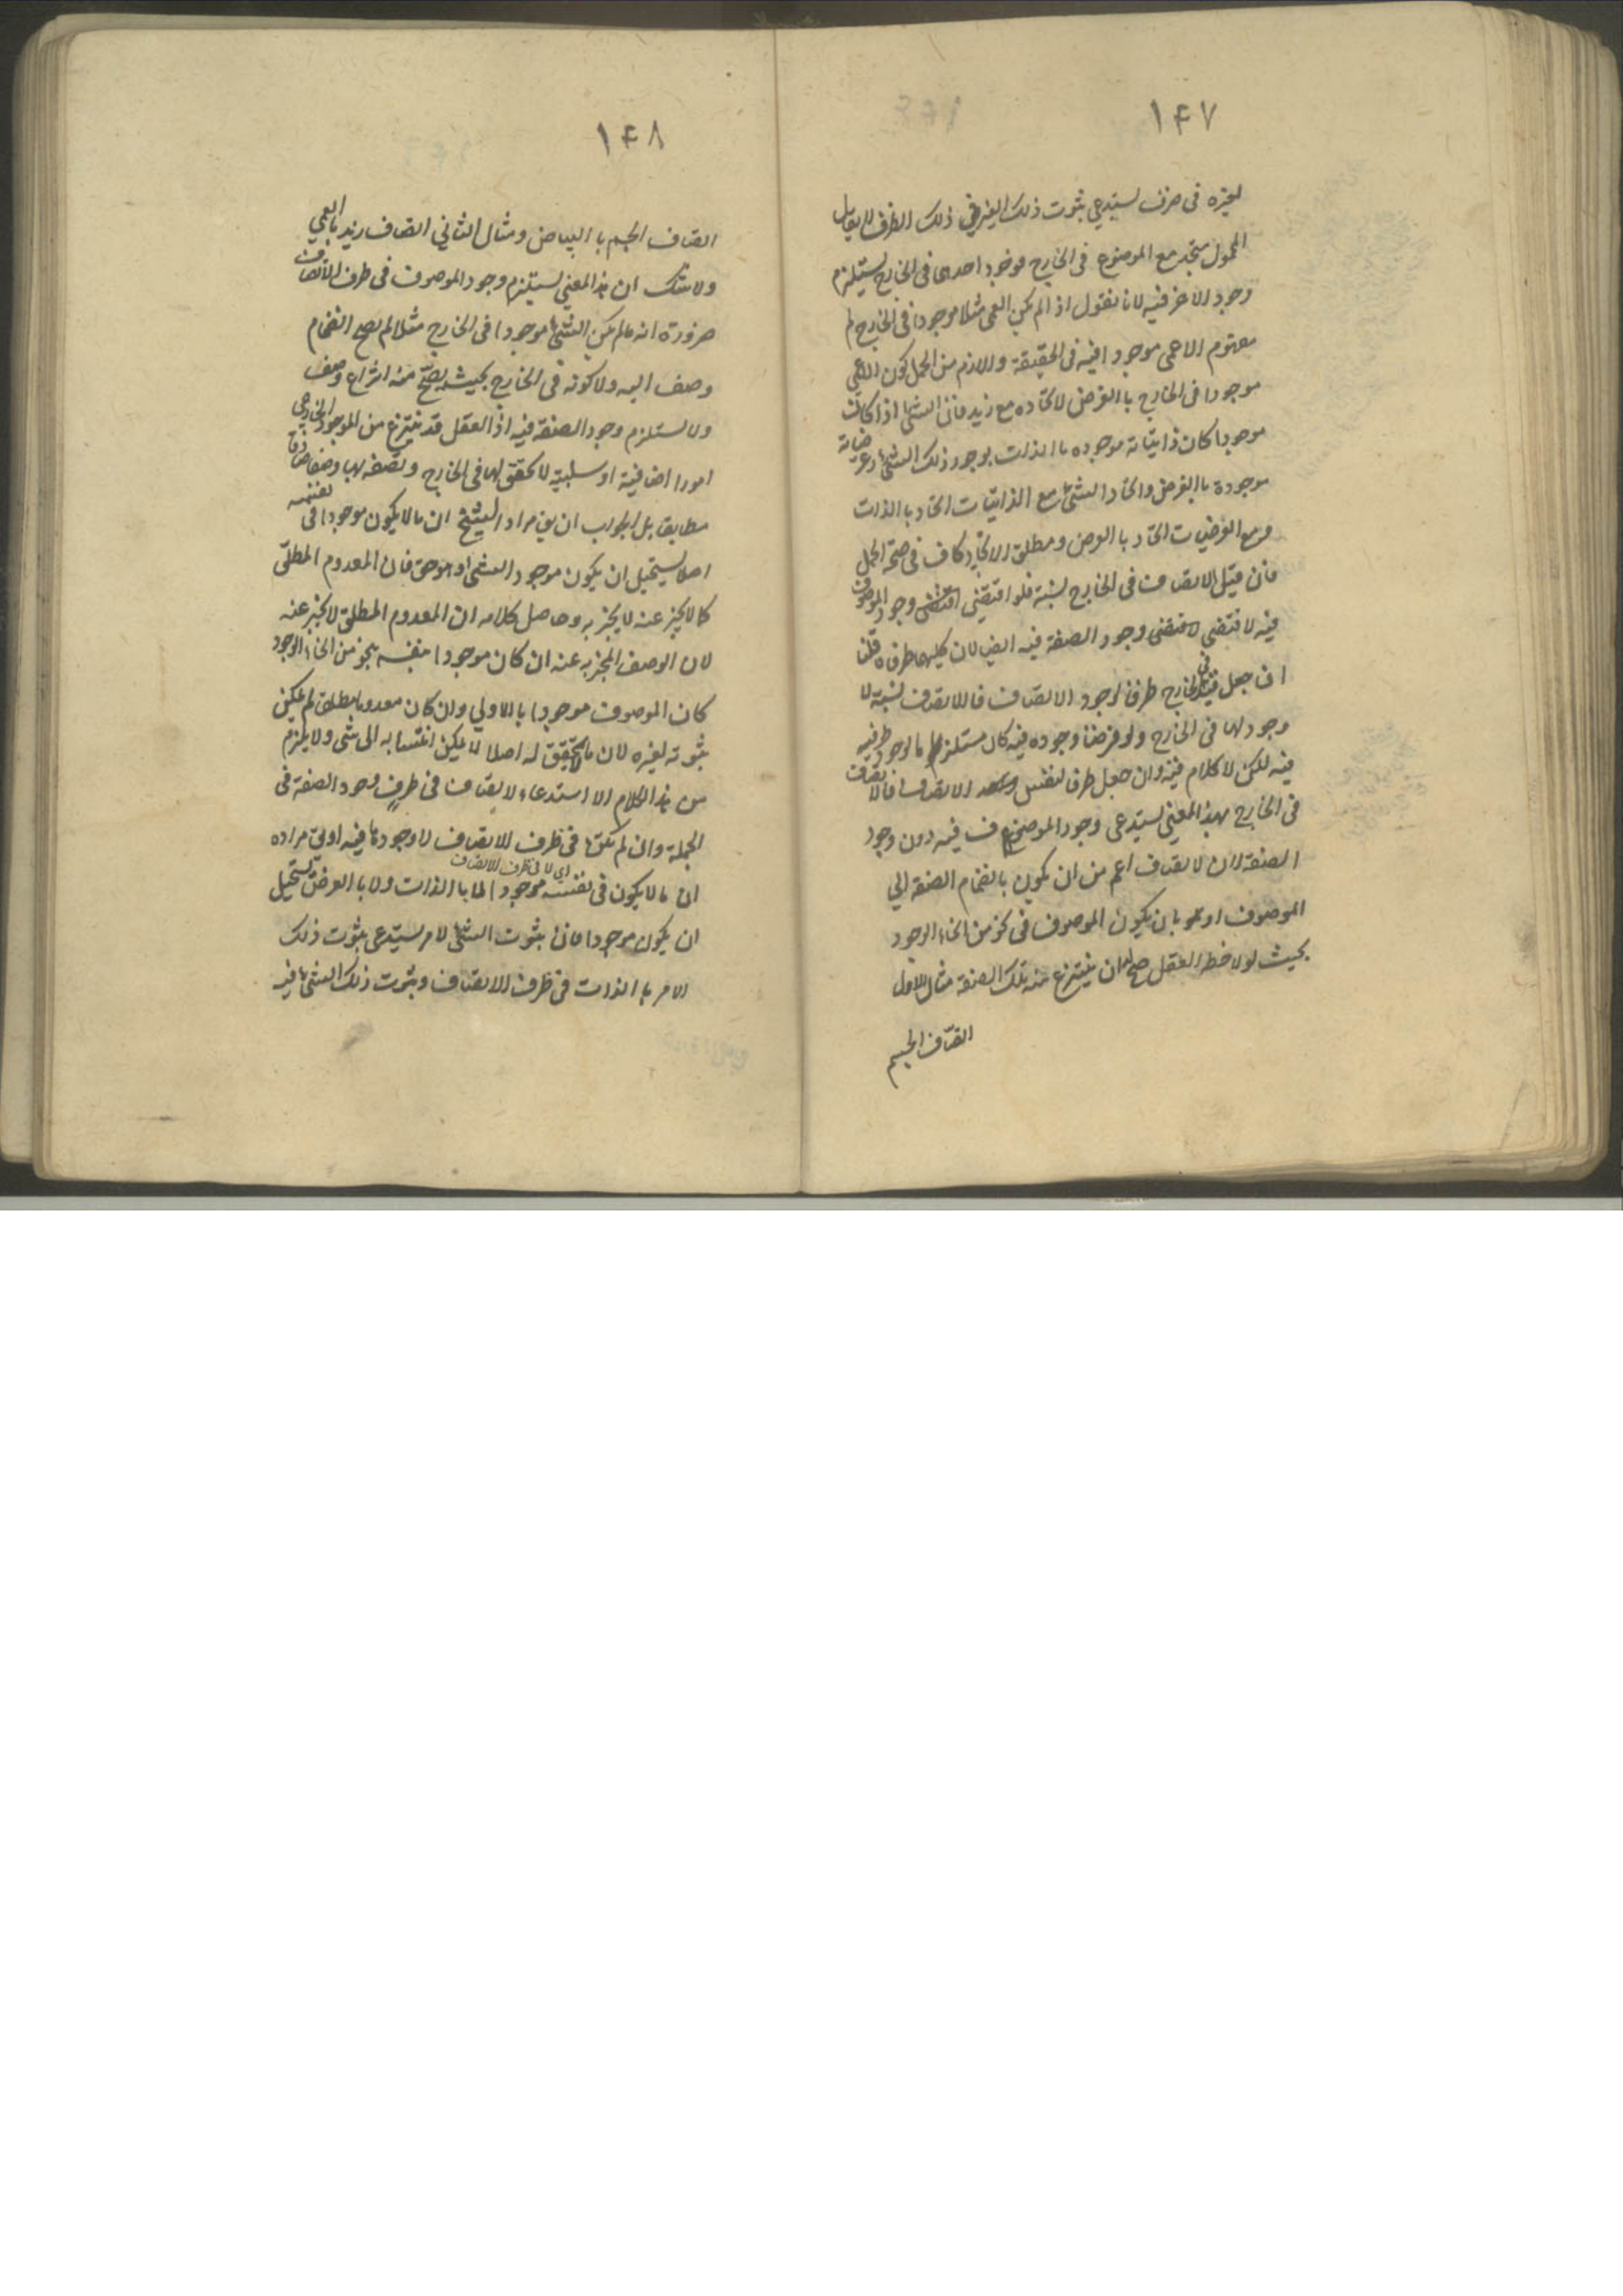 ١٤٧
لغيره فى ظرف يستدعي ثبوت ذلك الغير في ذلك الظرف لا يقال
المحمول متحد مع الموضوع فى الخارج فوجود احدهما فى الخارج يستلزم
وجود الاخر فيه لانا نقول اذا لم يكن العمى مثلا موجودا فى الخارج لم
مفهوم الاعمى موجودا فيه فى الحقيقة واللازم من الحمل كون الاعمى
موجودا فى الخارج بالعرض لاتحاده مع زيد فان الشئ اذا كان
موجودا كان ذاتياته موجوده بالذات بوجود ذلك الشئ وعرضياته
موجودة بالعرض واتحاد الشئ مع الذاتيات اتحاد بالذات
ومع العرضيات اتحاد بالعرض ومطلق الاتحاد كاف فى صحة الحمل
فان قيل الاتصاف فى الخارج نسبة فلو اقتضى وجود الموصوف
فيه لاقتضى وجود الصفة فيه ايضا لان كليهما طرفاه قلنا
ان جعل فى الخارج ظرفا لوجود الاتصاف فالاتصاف نسبة لا
وجود لها فى الخارج ولو فرضنا وجوده فيه كان مستلزما لوجود طرفيه
فيه لكن لا كلام فيه وان جعل ظرفا لنفس الاتصاف فالاتصاف
فى الخارج بهذا المعنى يستدعى وجود الموصوف فيه دون وجود
الصفة لان الاتصاف اعم من ان يكون بانضمام الصفة الى
الموصوف او بان يكون الموصوف فى نحو من انحاء الوجود
بحيث لو لاحظه العقل صح له ان ينتزع منه تلك الصفة مثال الاول
اتصاف الجسم
١٤٨
اتصاف الجسم بالبياض ومثال الثاني اتصاف زيد بالعمي
ولا شك ان هذا المعنى يستلزم وجود الموصوف فى ظرف الاتصاف
ضرورة انه ما لم يكن الشئ موجودا فى الخارج مثلا لم يصح انضمام
وصف اليه ولا كونه فى الخارج بحيث يصح منه انتزاع وصف
ولا يستلزم وجود الصفة فيه اذ العقل قد ينتزع من الموجود الخارجي
امورا اضافية او سلبية لا تحقق لها فى الخارج ويصفه بها وصفا صادقا
مطابقا بل الجواب ان يق مراد الشيخ ان ما لا يكون موجودا فى نفسه
اصلا يستحيل ان يكون موجودا لشئ او هو حق فان المعدوم المطلق
كما لا يخبر عنه لا يخبر به وحاصل كلامه ان المعدوم المطلق لا يخبر عنه
لان الوصف المخبر به عنه ان كان موجودا بنفسه بنحو من انحاء الوجود
كان الموصوف موجودا بالاولي وان كان معدوما مطلقا لم يمكن
ثبوته لغيره لان ما لا تحقق له اصلا لا يمكن انتسابه الى شئ ولا يلزم
من هذا الكلام الا استدعاء الاتصاف فى ظرف وجود الصفة فى
الجملة وان لم تكن فى ظرف الاتصاف لا وجودها فيه اولى مراده
اي لا فى ظرف الاتصاف
ان ما لا يكون فى نفسه موجودا لا بالذات ولا بالعرض يستحيل
ان يكون موجودا فان ثبوت الشئ لامر يستدعى ثبوت ذلك
الامر بالذات فى ظرف الاتصاف وثبوت ذلك الشئ فيه